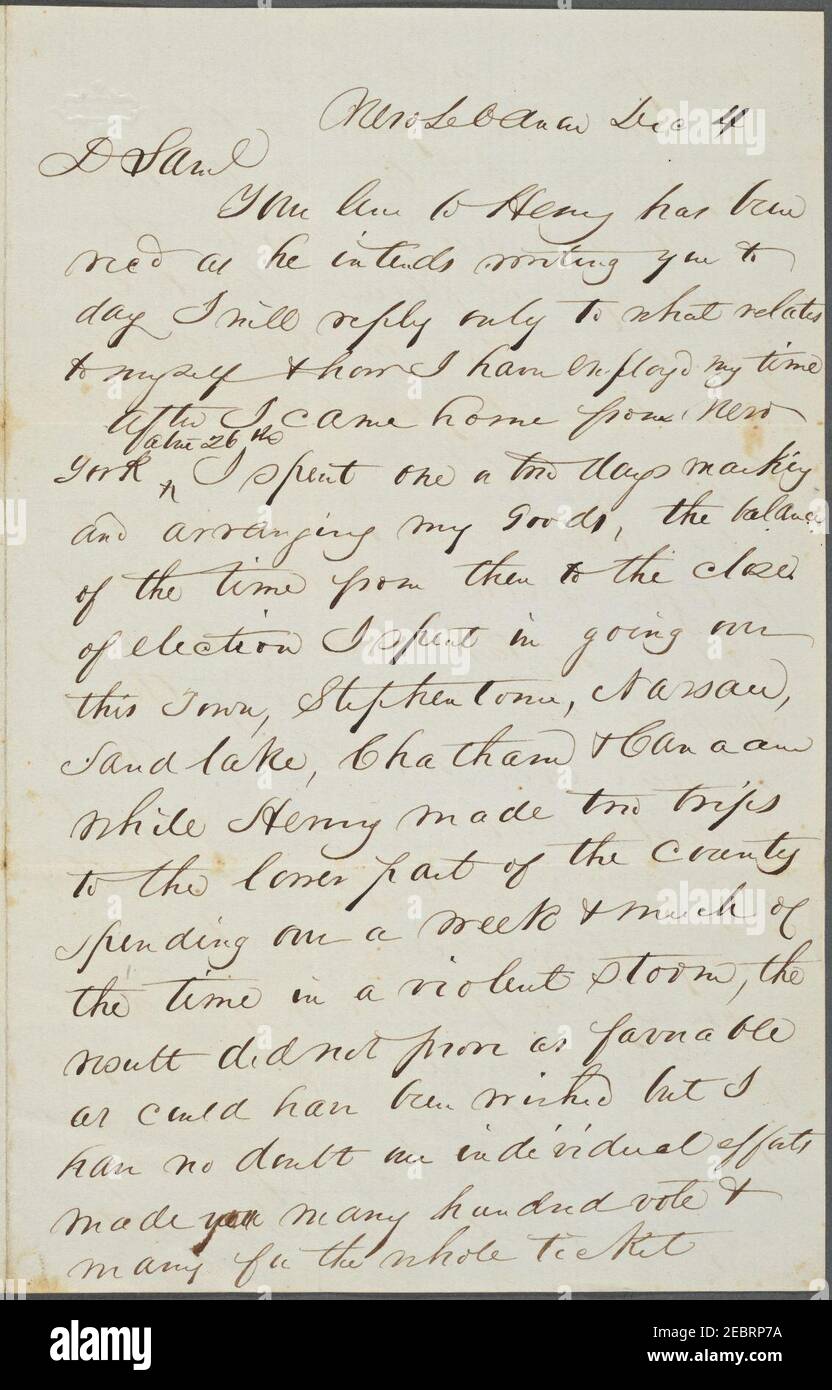 New Lebanon Dec 4
D Saml
Your line to Henry has been
recd as he intends writing you to
day I will reply only to what relates
to myself & how I have employd my time
after I came home from New
York ^ about 26th I spent one or two days marking
and arranging my Goods, the balance
of the time from then to the close
of election I spent in going over
this Town, Stephentown, Nassau,
Sandlake, Chatham & Canaan
while Henry made two trips
to the lower part of the county
spending over a week & much of
the time in a violent storm, the
result did not prove as favorable
as could have been wished but I
have no doubt our individual efforts
made you many hundred vote &
many for the whole ticket
alamy
Image ID: 2EBRP7A
www.alamy.com